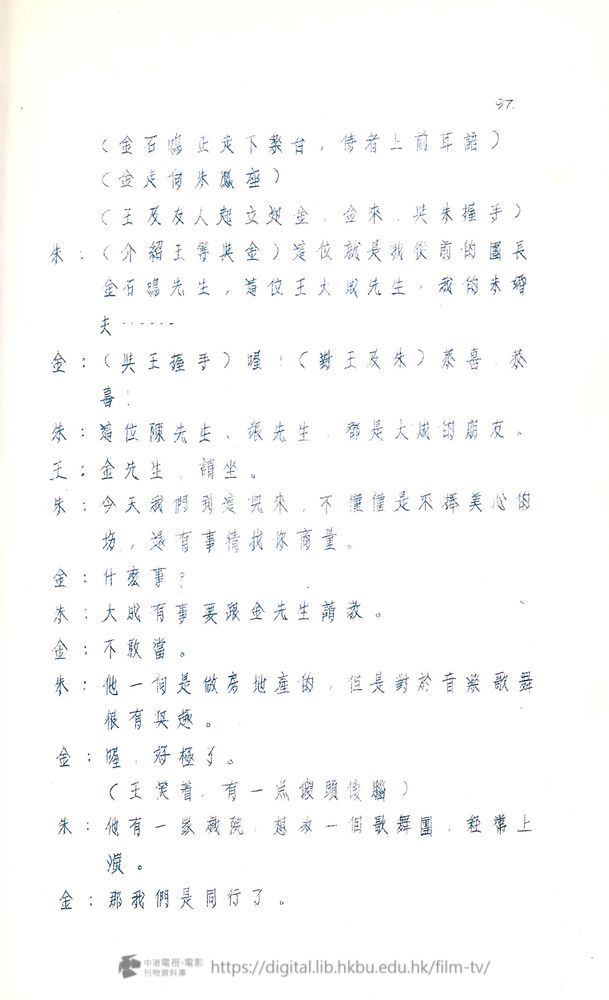 97.
（金石鳴正走下樂台，侍者上前耳語）
（金走向朱鳳座）
（王及友人起立迎金，金來，與朱握手）
朱：（介紹王等與金）這位就是我從前的團長
金石鳴先生，這位王大成先生，我的未婚
夫……
金：（與王握手）喔！（對王及朱）恭喜，恭
喜！
朱：這位陳先生、張先生，都是大成的朋友。
王：金先生，請坐。
朱：今天我們到這兒來，不僅僅是來捧美心的
場，還有事情找你商量。
金：什麽事？
朱：大成有事要跟金先生請教。
金：不敢當。
朱：他一向是做房地產的，但是對於音樂歌舞
很有興趣。
金：喔，好極了。
（王笑着，有一点傻頭傻腦）
朱：他有一家戲院，想放一個歌舞團，經常上
演。
金：那我們是同行了。
中港電視·電影
刊物資料庫
https://digital.lib.hkbu.edu.hk/film-tv/